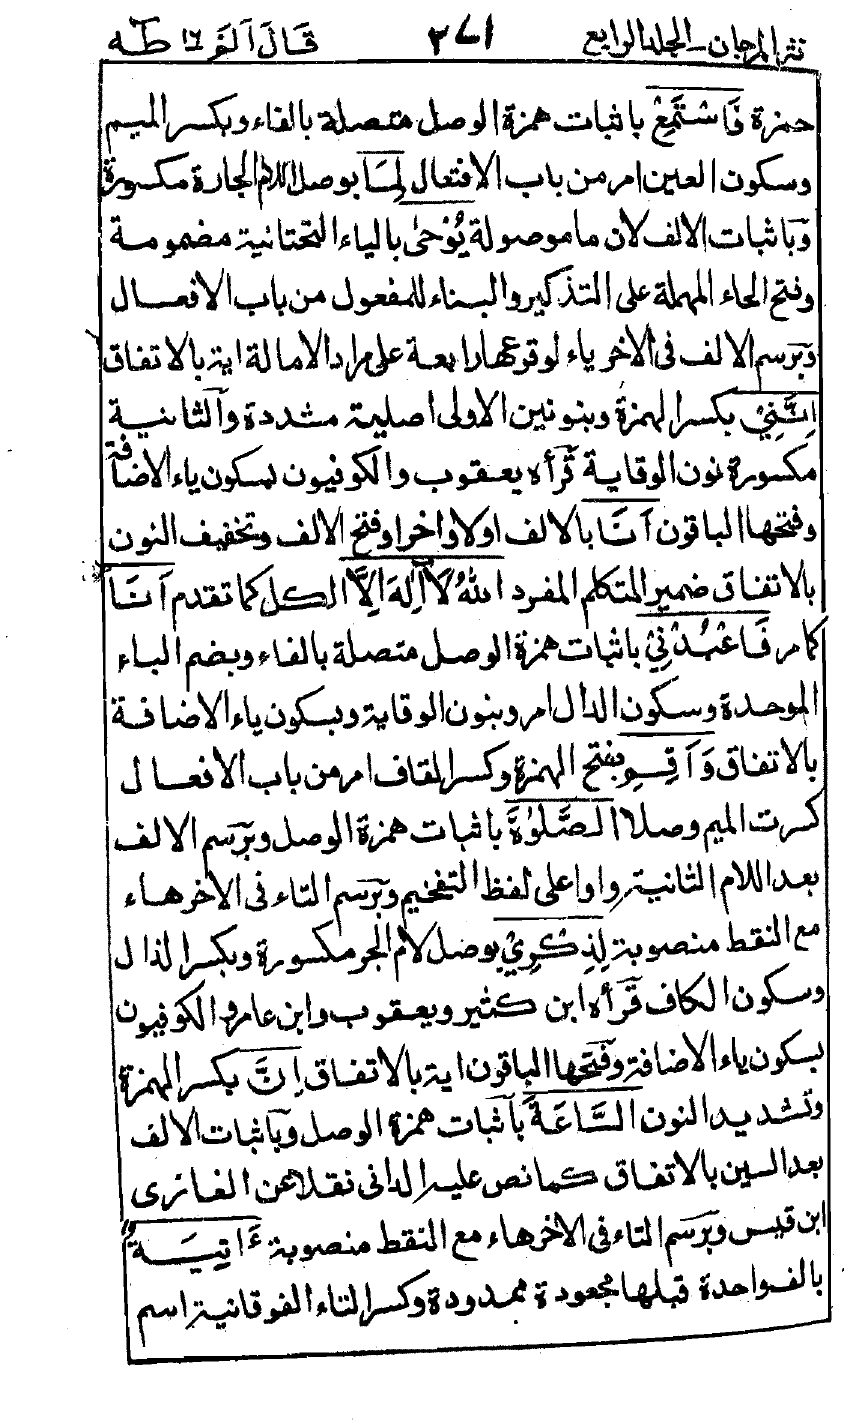 نثر المرجان ــ الجلد الرابع ٣٧١ قَالَ اَلَمْ ١٦ طٰهٰ
حمزة فَاسْتَمِعْ باثبات همزة الوصل متصلة بالفاء وبكسر الميم
وسكون العين امر من باب الافتعال لِمَا بوصل اللام الجارة مكسورة
وَباثبات الالف لان ما موصولة يُوْحٰى بالياء التحتانية مضمومة
وفتح الحاء المهملة على التذكير والبناء للمفعول من باب الافعال
وَبرسم الالف فى الاخر ياء لوقوعها رابعة على مراد الامالة اية بالاتفاق
اِنَّنِيْ بكسر الهمزة وبنونين الاولى اصلية مشددة وَالثانية
مكسورة نون الوقاية قرأه يعقوب والكوفيون بسكون ياء الاضافة
وفتحها الباقون اَنَا بالالف اولا واخرا وفتح الالف وتخفيف النون
بالاتفاق ضمير المتكلم المفرد اللّٰهُ لَآ اِلٰهَ اِلَّآ الكل كما تقدم اَنَا
كما مر فَاعْبُدْنِيْ باثبات همزة الوصل متصلة بالفاء وبضم الباء
الموحدة وسكون الدال امر وبنون الوقاية وبسكون ياء الاضافة
بالاتفاق وَاَقِمِ بفتح الهمزة وكسر القاف امر من باب الافعال
كسرت الميم وصلا الصَّلٰوةَ باثبات همزة الوصل وبرسم الالف
بعد اللام الثانية واوا على لفظ التفخيم وبرسم التاء فى الاخر هاء
مع النقط منصوبة لِذِكْرِيْ بوصل لام الجر مكسورة وبكسر الذال
وسكون الكاف قرأه ابن كثير ويعقوب وابن عامر والكوفيون
بسكون ياء الاضافة وفتحها الباقون اية بالاتفاق اِنَّ بكسر الهمزة
وتشديد النون السَّاعَةَ باثبات همزة الوصل وباثبات الالف
بعد السين بالاتفاق كما نص عليه الدانى نقلا عن الغازى
ابن قيس وبرسم التاء فى الاخر هاء مع النقط منصوبة ءَاتِيَةٌ
بالف واحدة قبلها مجعودة ممدودة وكسر التاء الفوقانية اسم